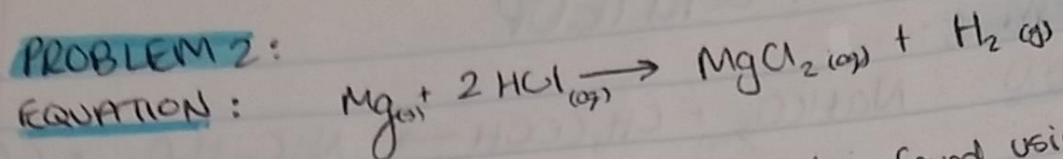 PROBLEM 2:
EQUATION: Mg(s) + 2 HCl(aq) → MgCl₂(aq) + H₂(g)
usi